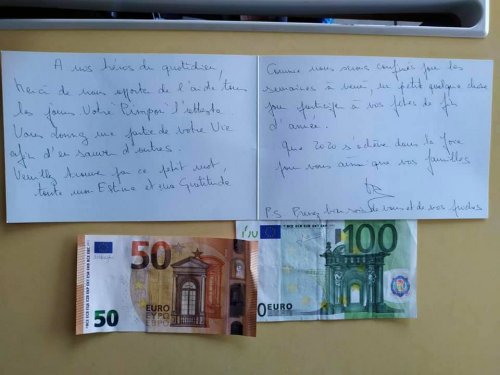 A nos héros du quotidien,
Merci de nous apporter de l'aide tous
les jours. Votre "Pimpon" l'atteste.
Vous donnez une partie de votre Vie
afin d'en sauver d'autres.
Veuillez trouver par ce petit mot
toute mon Estime et ma Gratitude
Comme nous serons confinés pour les
semaines à venir, un petit quelque chose
pour participer à vos fêtes de fin
d'année.
Que 2020 s'achève dans la Joie
pour vous ainsi que vos familles
PS Prenez bien soin de vous et de vos proches
50
EURO
ΕΥΡΩ
50
100
EURO